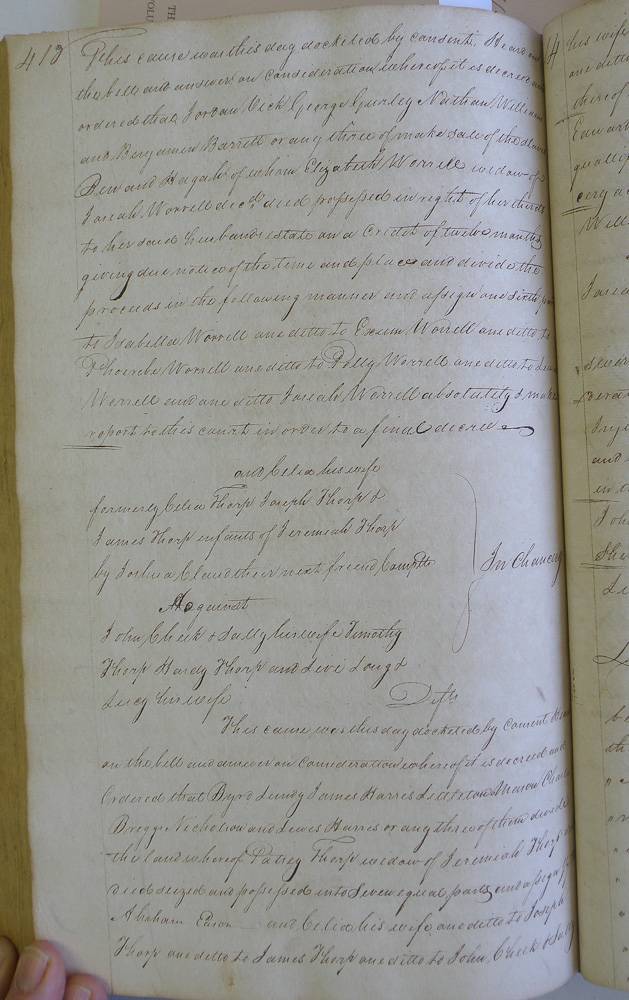 413
This cause was this day docketed by consent. Heard on
the bill and answer on consideration whereof it is decreed and
ordered that Jordan Vick George Gurley Nathan William
and Benjamin Barrett or any three of make sale of the slaves
Ben and Hagah of whom Elizabeth Worrell widow of
Josiah Worrell decd. died possessed in right of her
to her said husbands estate on a Credit of twelve months
giving due notice of the time and place and divide the
proceeds in the following manner and assign one sixth
to Isabella Worrell one ditto to Exum Worrell one ditto to
Phoerbe Worrell one ditto to Polly Worrell one ditto to
Worrell and one ditto Josiah Worrell absolutely & make
report to this court in order to a final decree
and Celia his wife
formerly Celia Thorp Joseph Thorp &
James Thorp infants of Jeremiah Thorp
by Joshua Claud their next friend Complts
In Chancery
Against
John Cheek & Sally his wife Timothy
Thorp Hardy Thorp and Levi Long &
Lucy his wife
Defts
This cause was this day docketed by Consent
on the bill and answer on Consideration whereof it is decreed and
Ordered that Byrd Lundy James Harris Littleton Mason Charles
Briggs Nicholson and Lewis Harris or any three of them divide
the land whereof Patsey Thorp widow of Jeremiah Thorp
died seized and possessed into Seven equal parts and assign
Abraham Eason and Celia his wife one ditto to Joseph
Thorp one ditto to James Thorp one ditto to John Cheek & Sally
his wife
one ditto
thereof
Edward